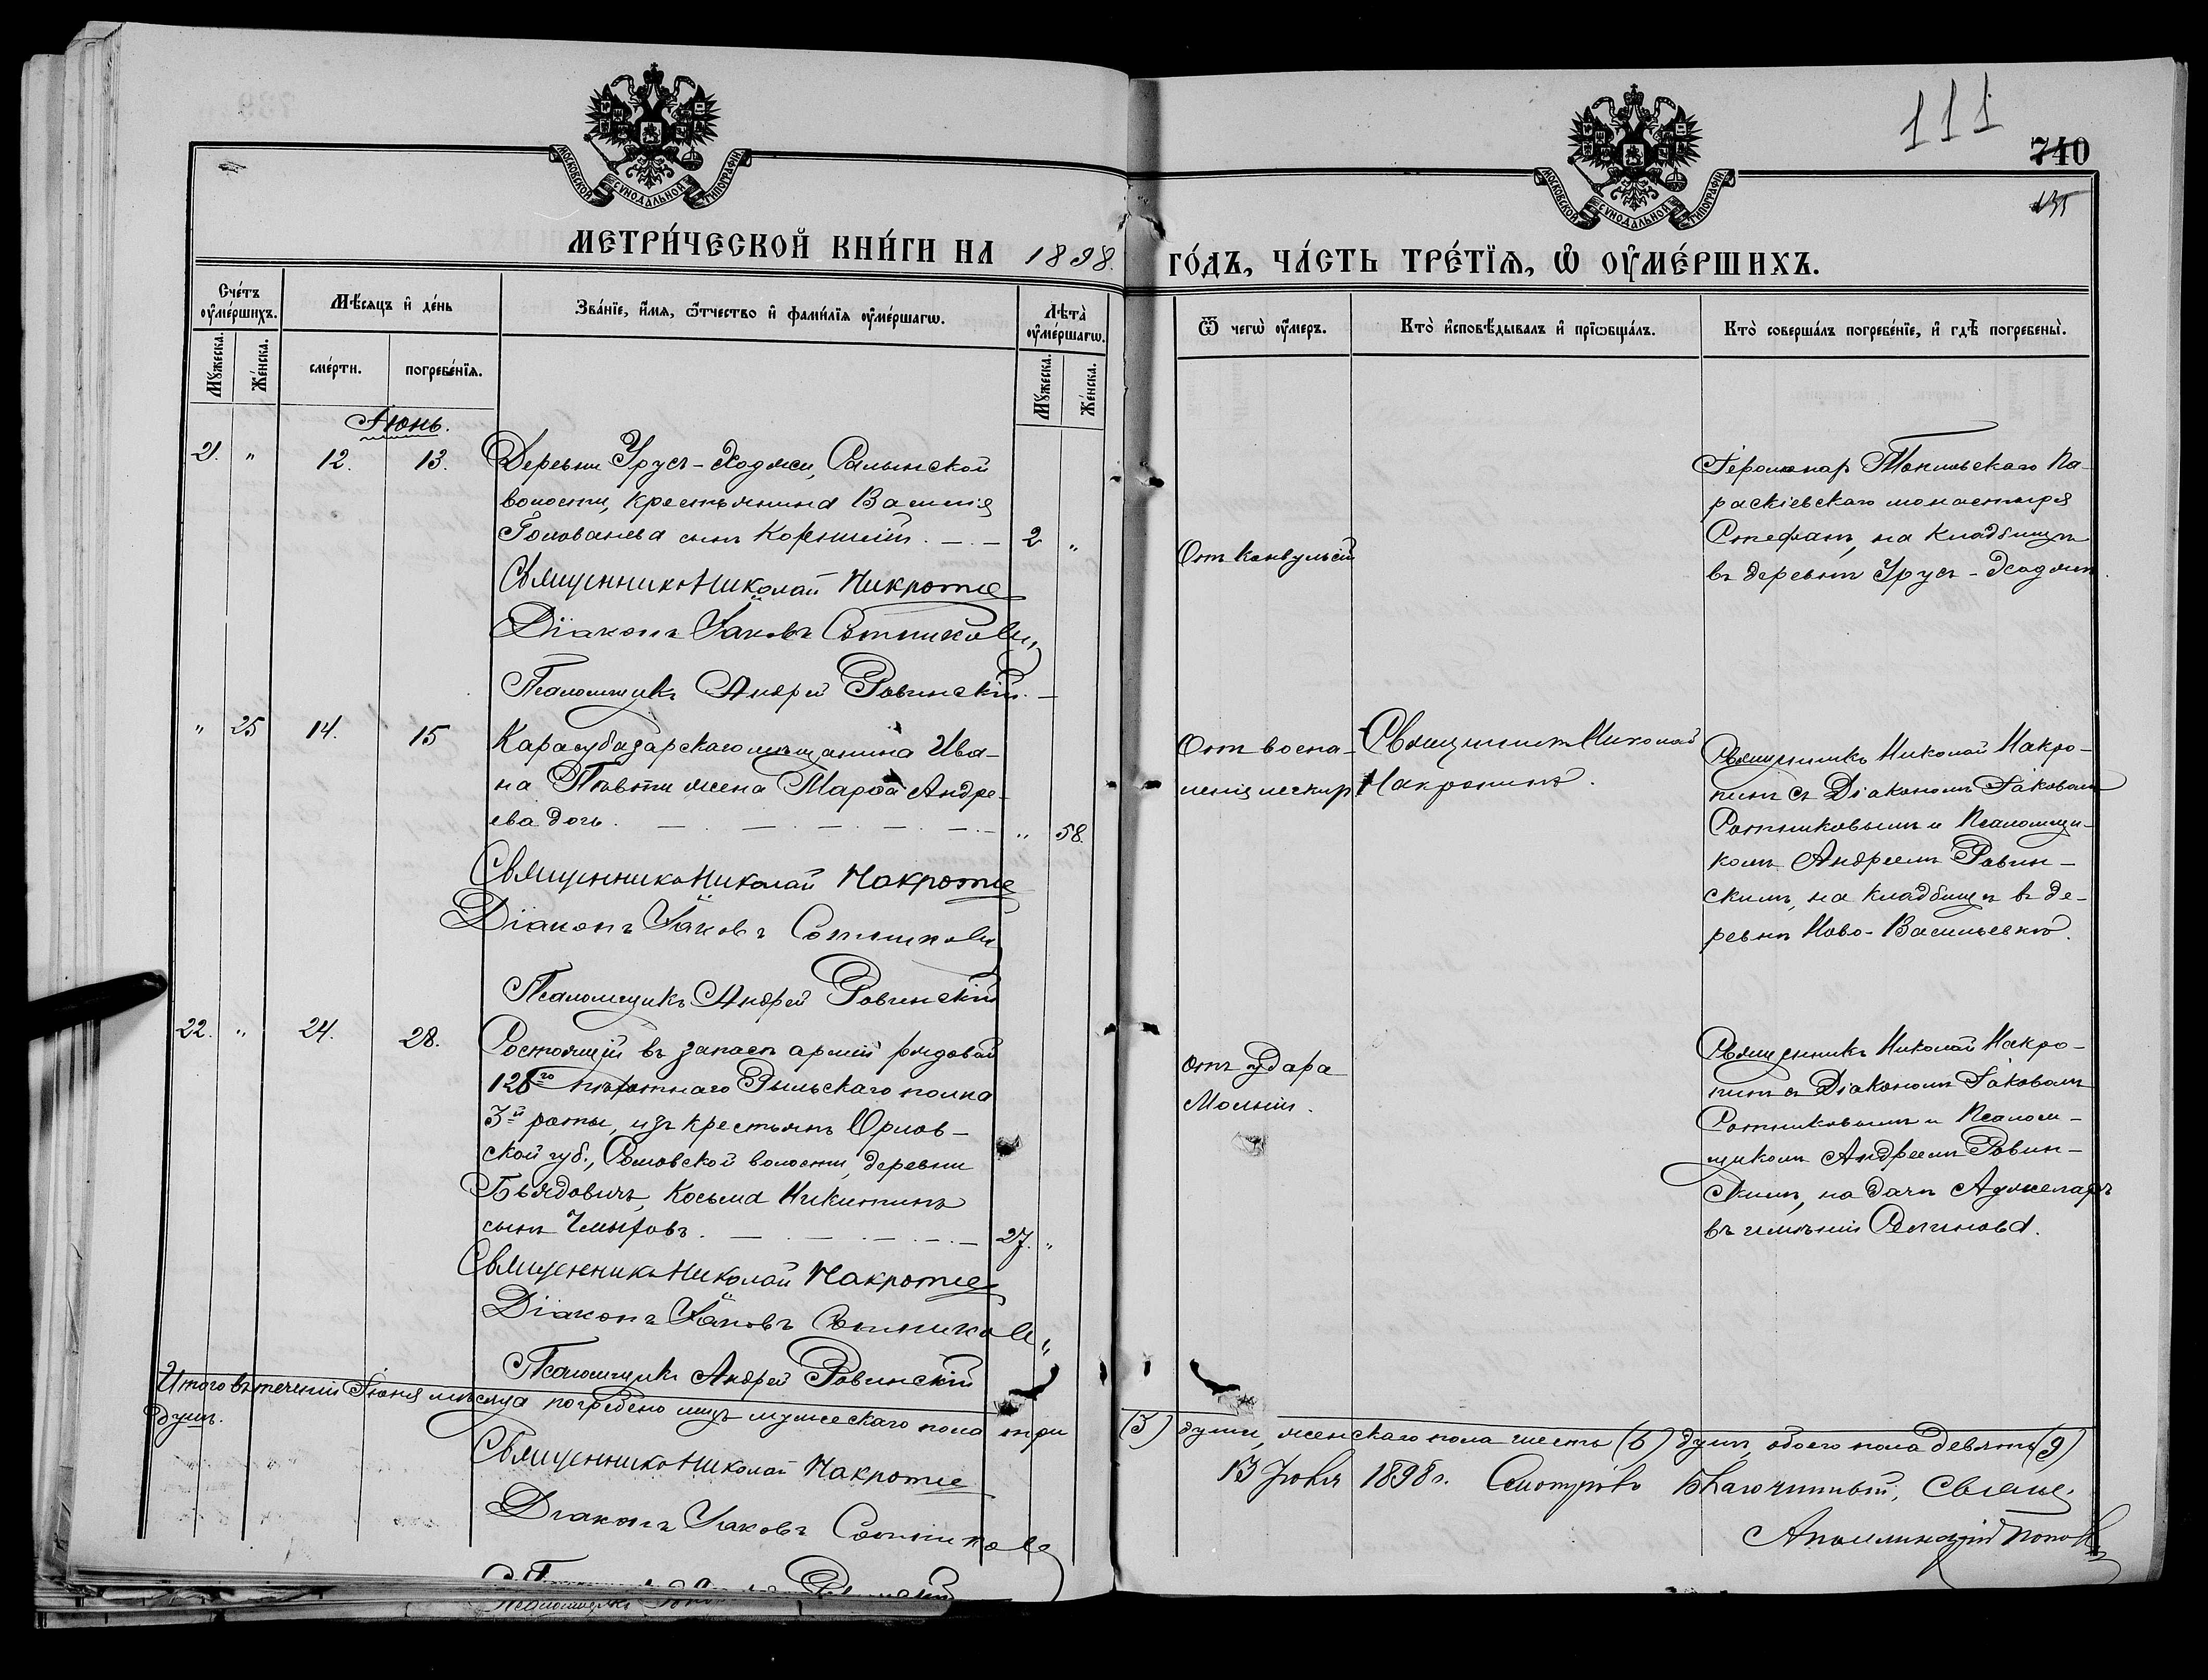 111
740
135
МОСКОВСКОЙ СѴНОДАЛЬНОЙ ТИПОГРАФІИ
МОСКОВСКОЙ СѴНОДАЛЬНОЙ ТИПОГРАФІИ
МЕТРИ́ЧЕСКОЙ КНИ́ГИ НА 1898.
ГО́ДЪ, ЧА́СТЬ ТРЕ́ТЇѦ, Ѡ ОУ҆МЕ́РШИХЪ.
Сче́тъ оу҆ме́ршихъ.
Мѣ́сяцъ и҆ де́нь
Зва́нїе, и҆́мя, ѻ҆́тчество и҆ фами́лїя оу҆ме́ршагѡ.
Лѣта̀ оу҆ме́ршагѡ.
Мꙋ́жеска.
Же́нска.
сме́рти.
погребе́нїя.
Мꙋ́жеска.
Же́нска.
Ѿ чегѡ̀ оу҆́меръ.
Кто̀ и҆сповѣ́дывалъ и҆ прїѡбща́лъ.
Кто̀ соверша́лъ погребе́нїе, и҆ гдѣ̀ погребены̀.
Іюнь.
21. " 12. 13.
Деревни Урусъ-Ходжи, Салынской
волости, крестьянина Василія
Голованева сынъ Корнилій. — . — 2 "
Священникъ Николай Макротис
Діаконъ Іаковъ Сотниковъ,
Псаломщикъ Андрей Ровинскій. —
Отъ конвульсій
Іеромонах Топловскаго Па-
раскіевскаго монастыря
Стефанъ, на кладбищѣ
въ деревнѣ Урусъ-Ходжи.
" 25 14. 15
Карасубазарскаго мѣщанина Ива-
на жена Марѳа Андре-
ева дочь. — . — . — . — . — " 58.
Священникъ Николай Макротис
Діаконъ Іаковъ Сотниковъ
Псаломщикъ Андрей Ровинскій
Отъ воспа-
ленія
Священникъ Николай
Священникъ Николай Макро-
съ Діакономъ Іаковомъ
Сотниковымъ и Псаломщи-
комъ Андреемъ Ровин-
скимъ, на кладбищѣ въ де-
ревнѣ Ново-Васильевкѣ.
22. " 24. 28.
Состоящій въ запасѣ арміи рядовой
126го пѣхотнаго Рыльскаго полка
3й роты, изъ крестьянъ Орлов-
ской губ., волости, деревни
Косьма Никитинъ
сынъ Чмыховъ. — . — . — . — 27. "
Священникъ Николай Макротис
Діаконъ Іаковъ Сотниковъ
Псаломщикъ Андрей Ровинскій
отъ удара
Молніи.
Священникъ Николай Макро-
съ Діакономъ Іаковомъ
Сотниковымъ и Псалом-
щикомъ Андреемъ Ровин-
скимъ, на дачѣ
въ имѣніи
Итого въ теченіи Іюня мѣсяца погребено лицъ мужескаго пола три
(3) души, женскаго пола шесть (6) душъ, обоего пола девять (9)
душъ.
Священникъ Николай Макротис
Діаконъ Іаковъ Сотниковъ
13 Іюля 1898 г. Смотрѣлъ Благочинный, Священ
Аполлинарій Поповъ
Псаломщикъ